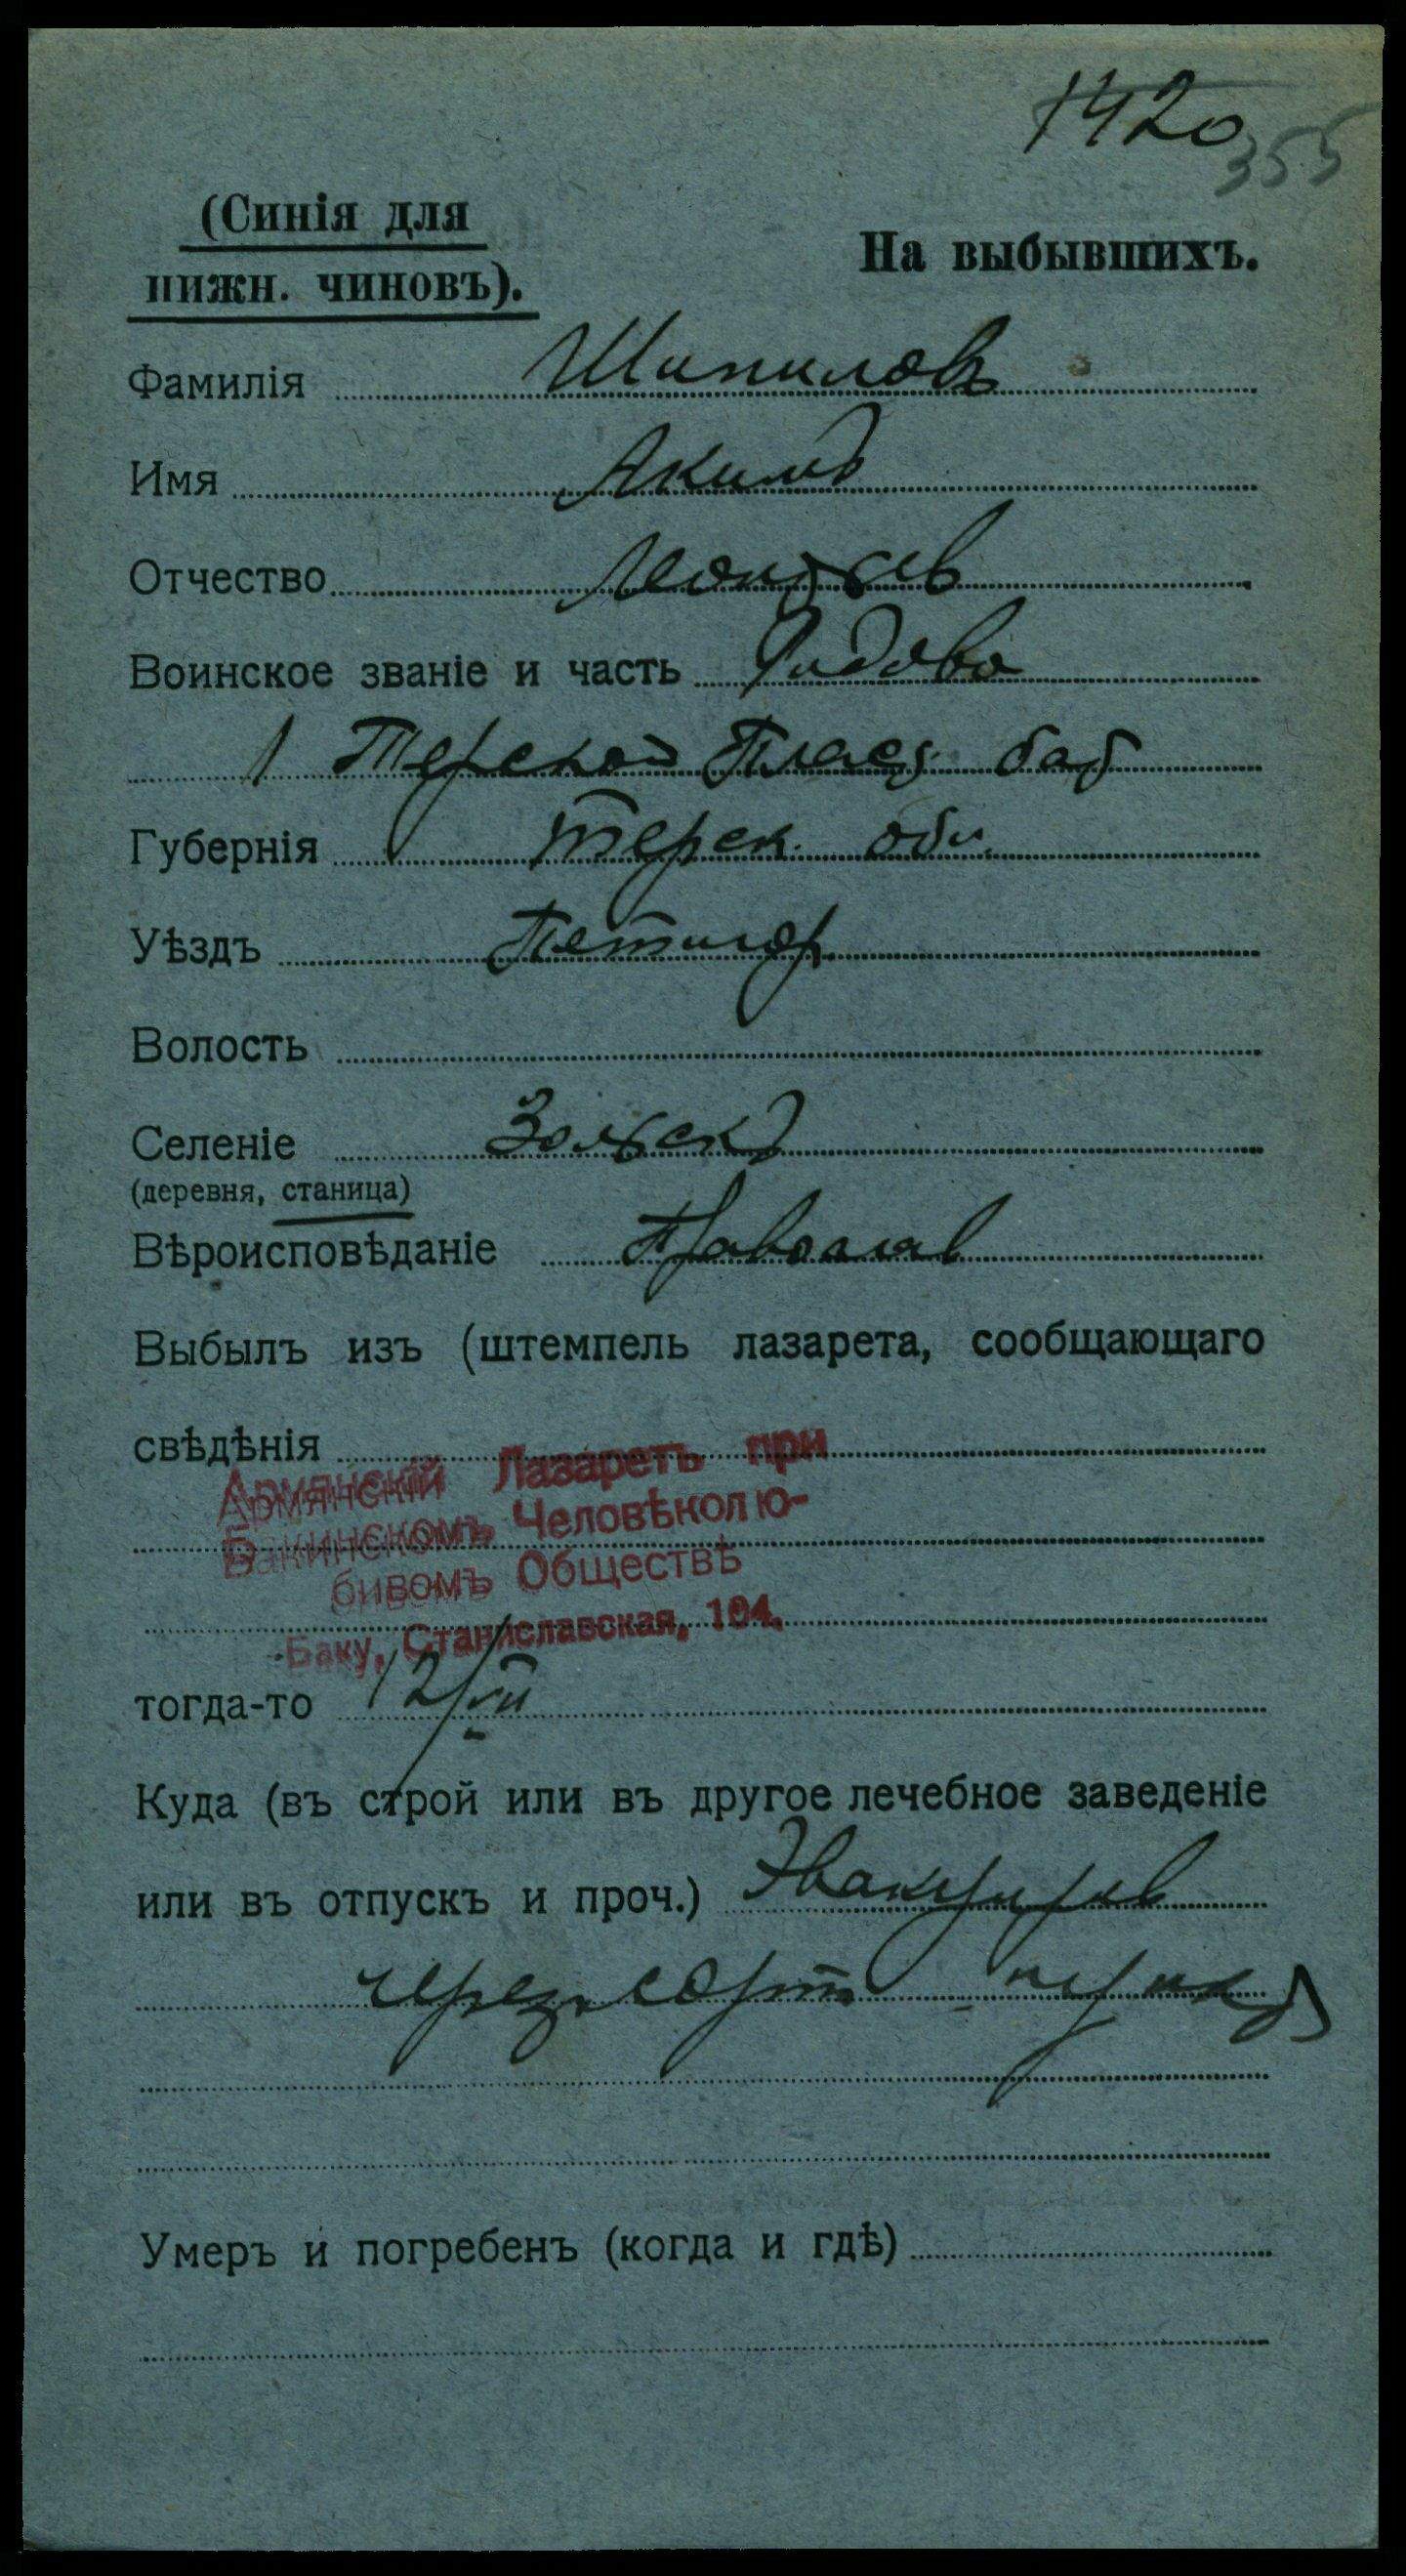 1420
355
(Синія для
нижн. чиновъ).
На выбывшихъ.
Фамилія Шипиловъ
Имя Акимъ
Отчество Леонтьев
Воинское званіе и часть Рядово
1 Терской Пласт. бат
Губернія Терск. обл.
Уѣздъ Петигор
Волость
Селеніе Зольск
(деревня, станица)
Вѣроисповѣданіе Православ
Выбылъ изъ (штемпель лазарета, сообщающаго
свѣдѣнія
Армянскій Лазаретъ при
Бакинскомъ Человѣколю-
бивомъ Обществѣ
Баку, Станиславская, 104.
тогда-то 12/VII
Куда (въ строй или въ другое лечебное заведеніе
или въ отпускъ и проч.) Эвакуиров
через сорт.
Умеръ и погребенъ (когда и гдѣ)